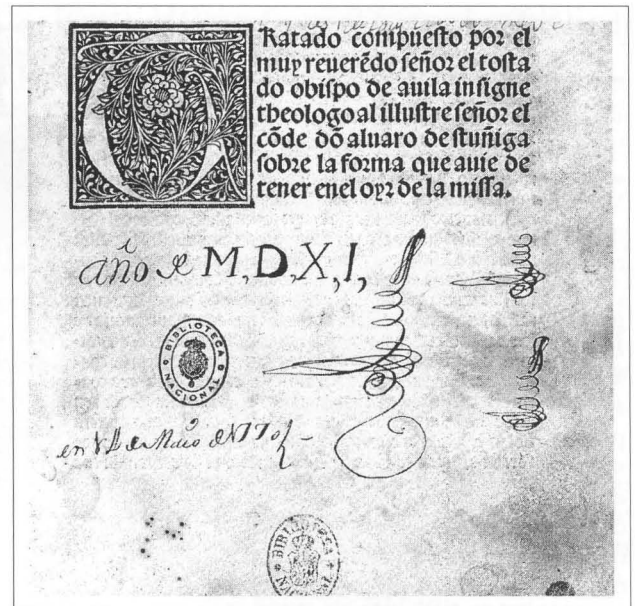 Tratado compuesto por el
muy reuerẽdo señor el tosta
do obispo de auila insigne
theologo al illustre señor el
cõde dõ aluaro de stuñiga
sobre la forma que auie de
tener enel oyr de la missa.
año de M,D,X,I,
BIBLIOTECA NACIONAL
en de Março de
BIBLIOTECA